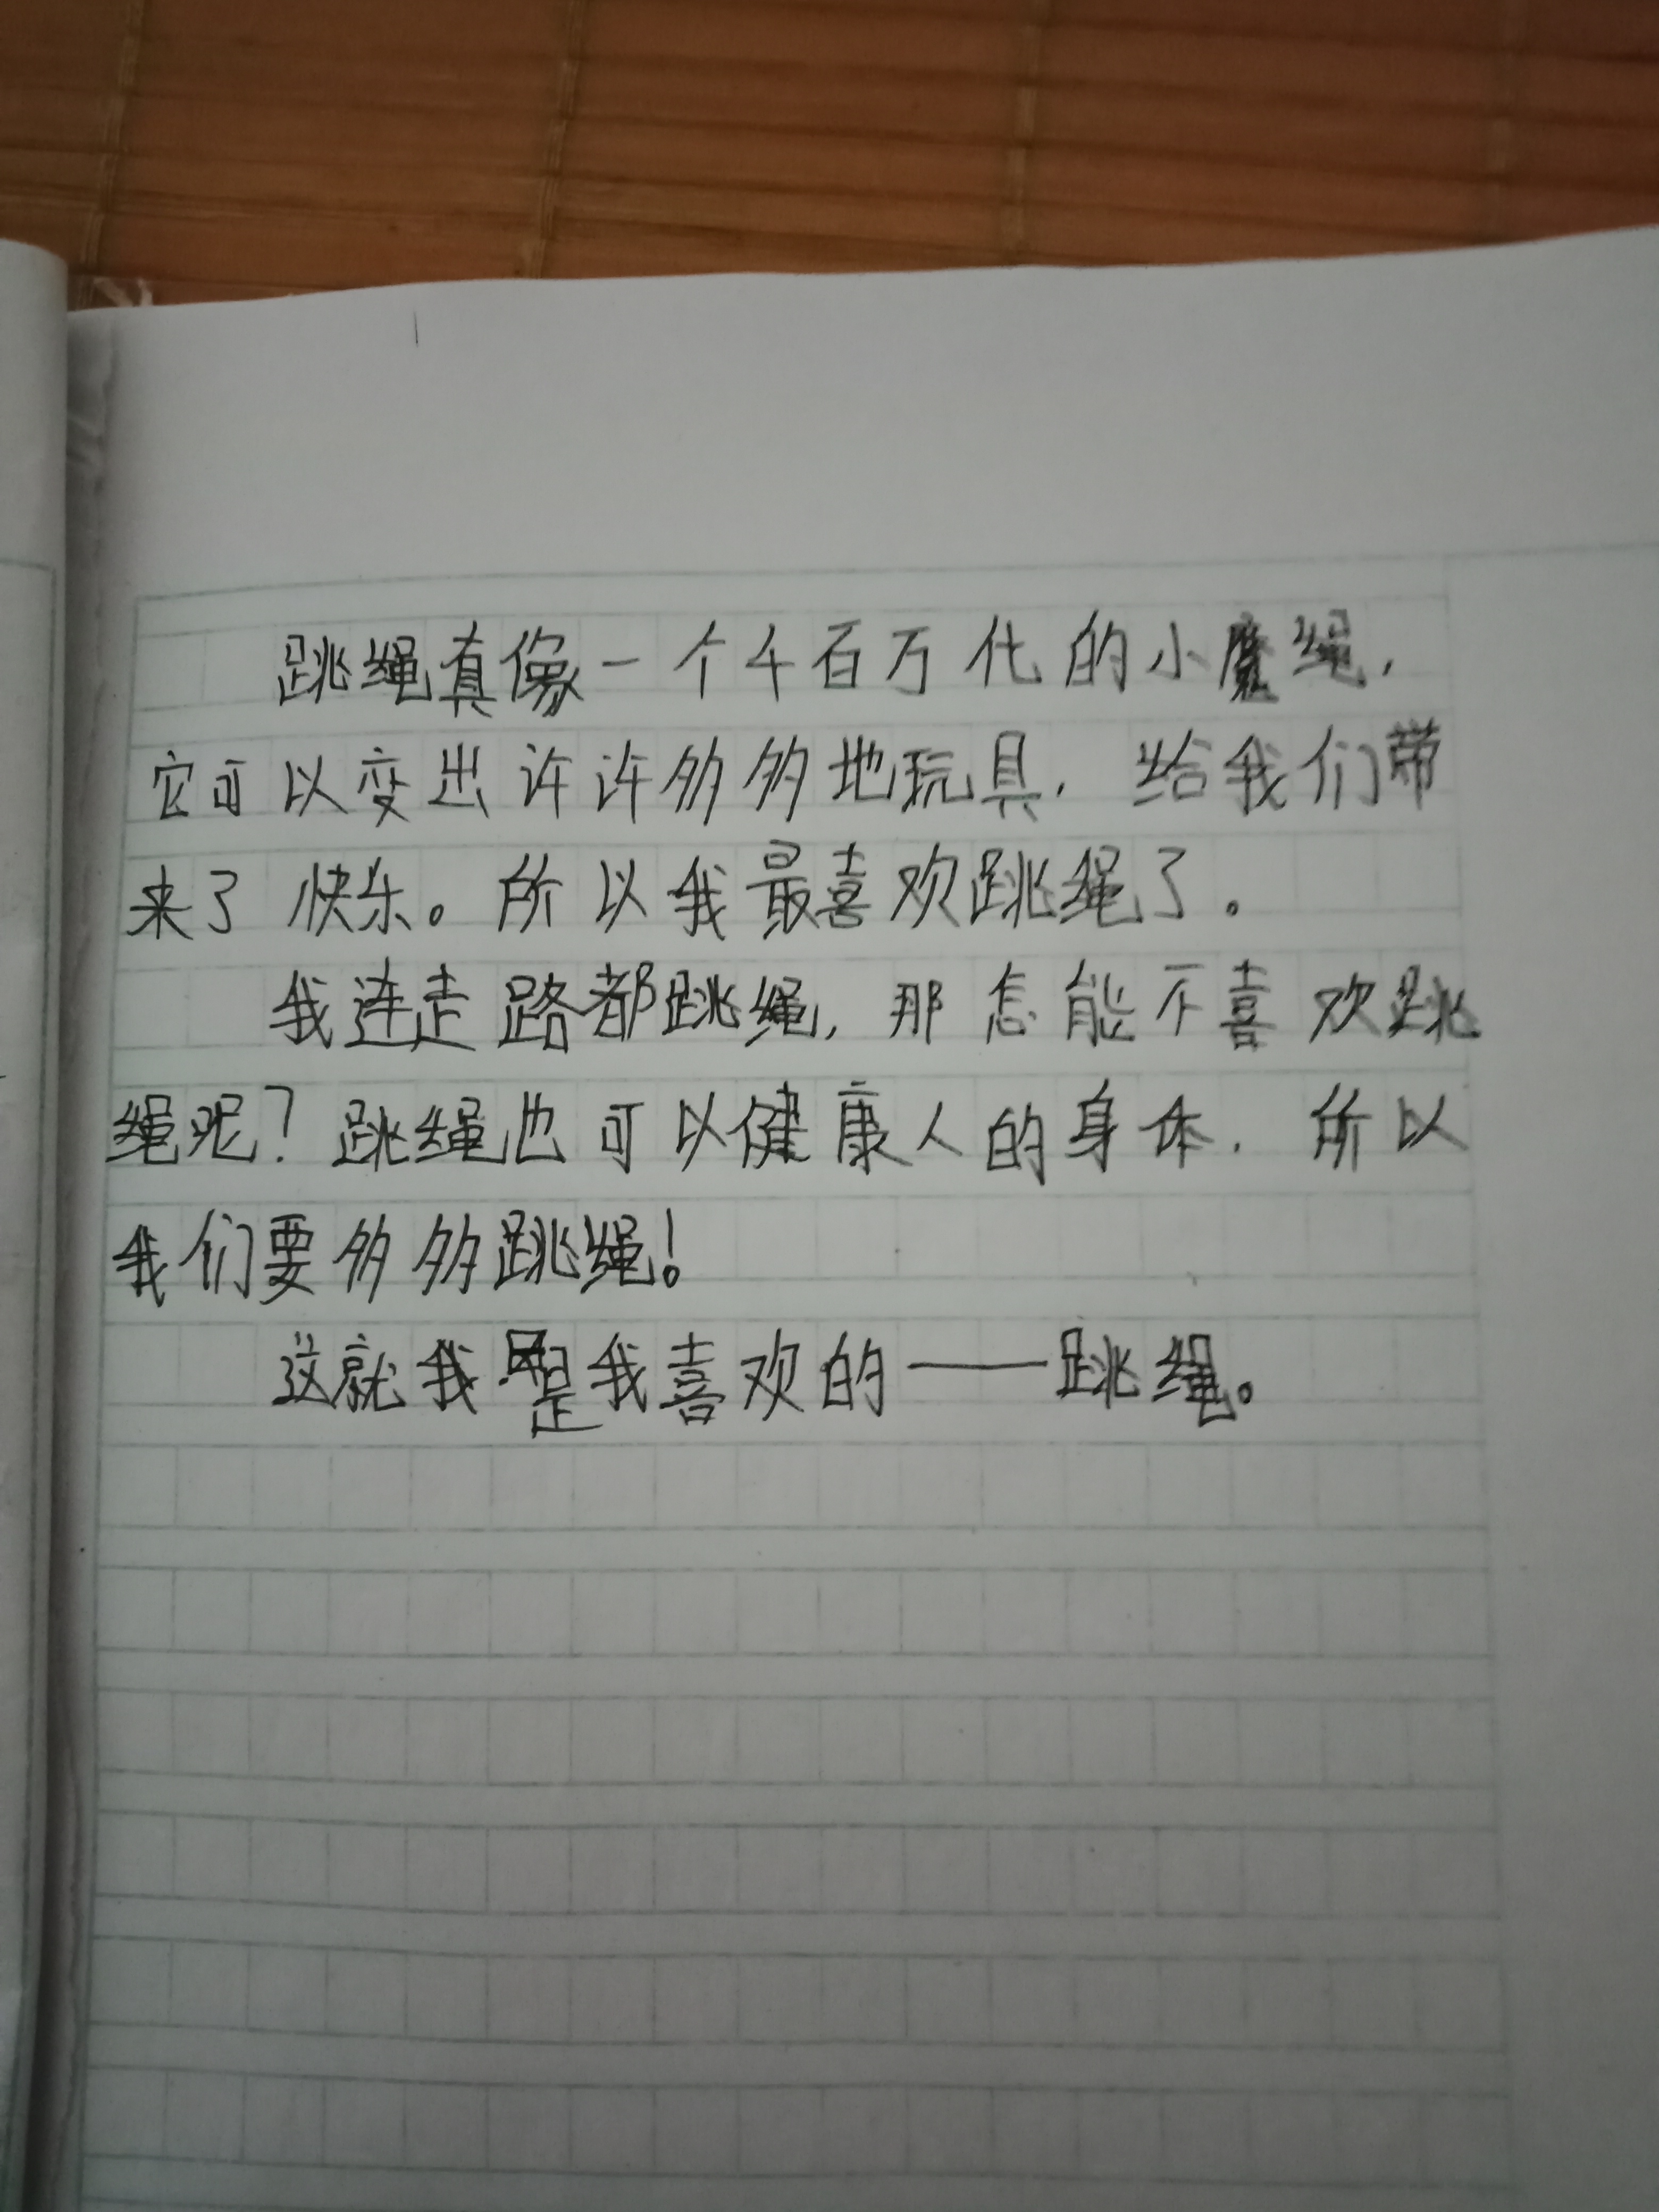 跳绳真像一个千百万化的小魔绳，
它可以变出许许多多地玩具，给我们带
来了快乐。所以我最喜欢跳绳了。
我连走路都跳绳，那怎能不喜欢跳
绳呢？跳绳也可以健康人的身体，所以
我们要多多跳绳！
这就我是我喜欢的——跳绳。